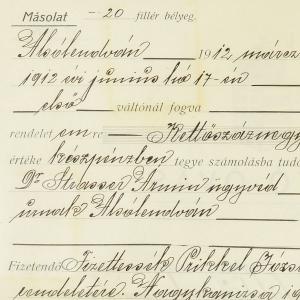 Másolat — 20 fillér bélyeg.
Alsólendván, 1912, márcz
1912 évi junius hó 17-én
első váltónál fogva
rendelet em re — Kettőszáznegy
értéke készpénzben tegye számolásba tudó
Dr Strasser Ármin ügyvéd
urnak Alsólendván
Fizetendő Fizettessék Prikkel Józse
rendeletére. Nagykanizsa 19